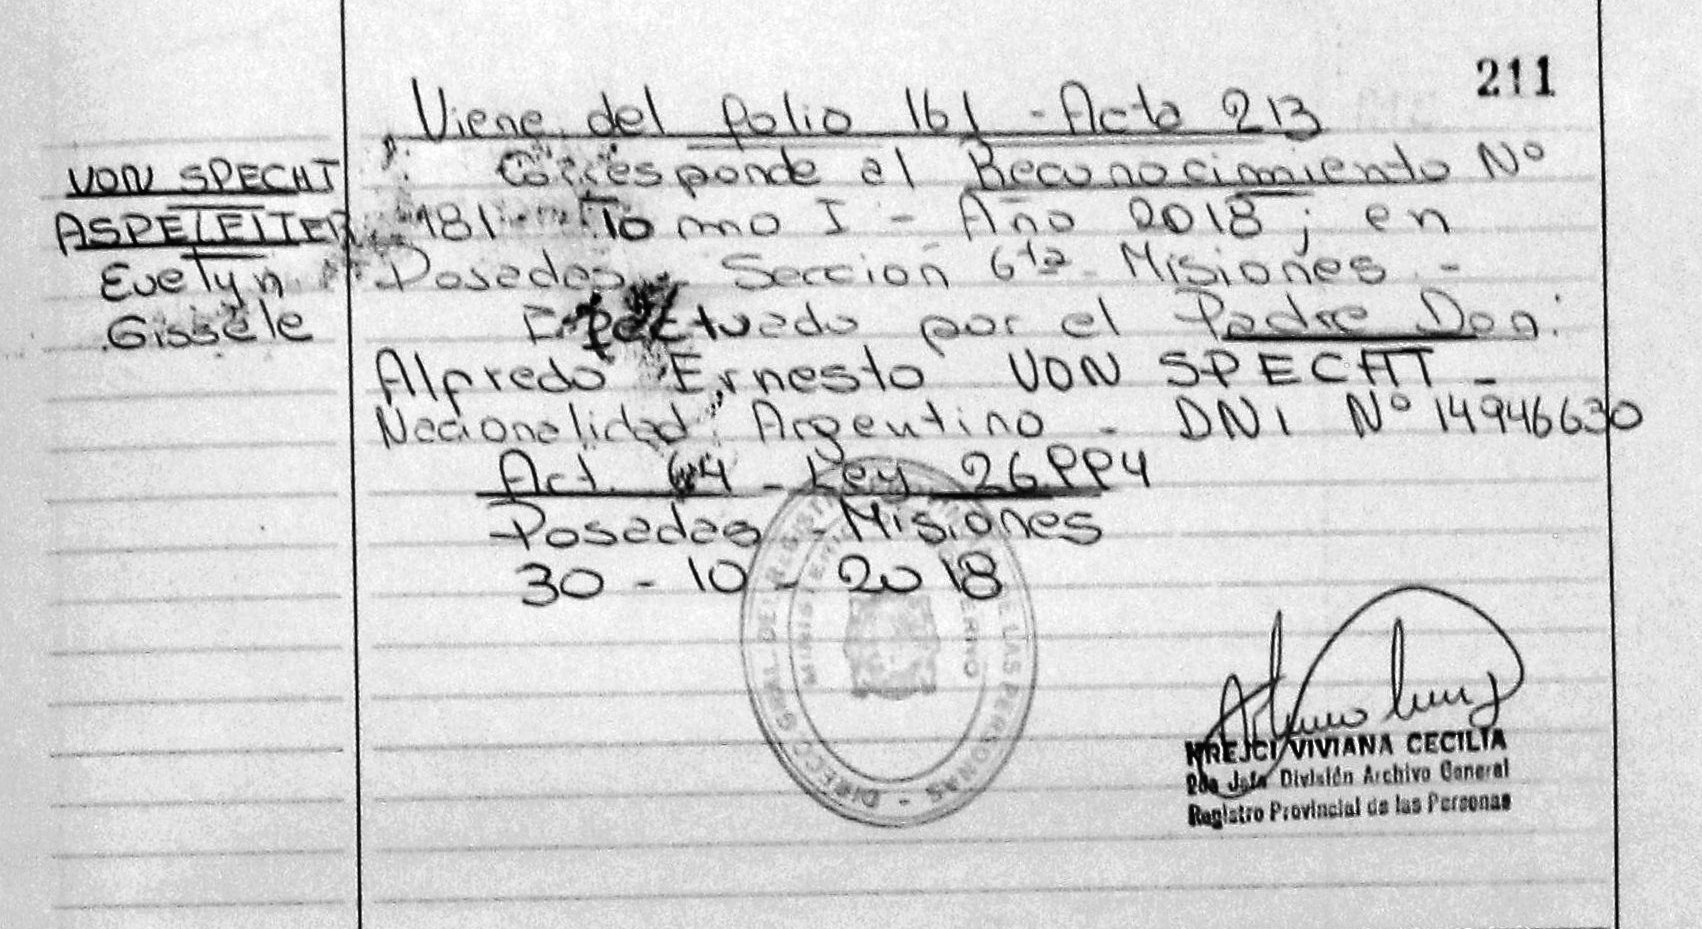 211
Viene del folio 161 - Acta 213
VON SPECHT
ASPELEITER
Evelyn
Gissele
Corresponde al Reconocimiento Nº
181 Tomo I - Año 2018; en
Posadas - Sección 6ta - Misiones -
Efectuado por el Padre Don:
Alfredo Ernesto VON SPECHT -
Nacionalidad: Argentino - DNI Nº 14946630
Art. 64 - Ley 26994
Posadas - Misiones
30 - 10 - 2018
DIRECC GRAL DEL REGISTRO DE LAS PERSONAS
MINISTERIO
VIVIANA CECILIA
2da Jefa División Archivo General
Registro Provincial de las Personas